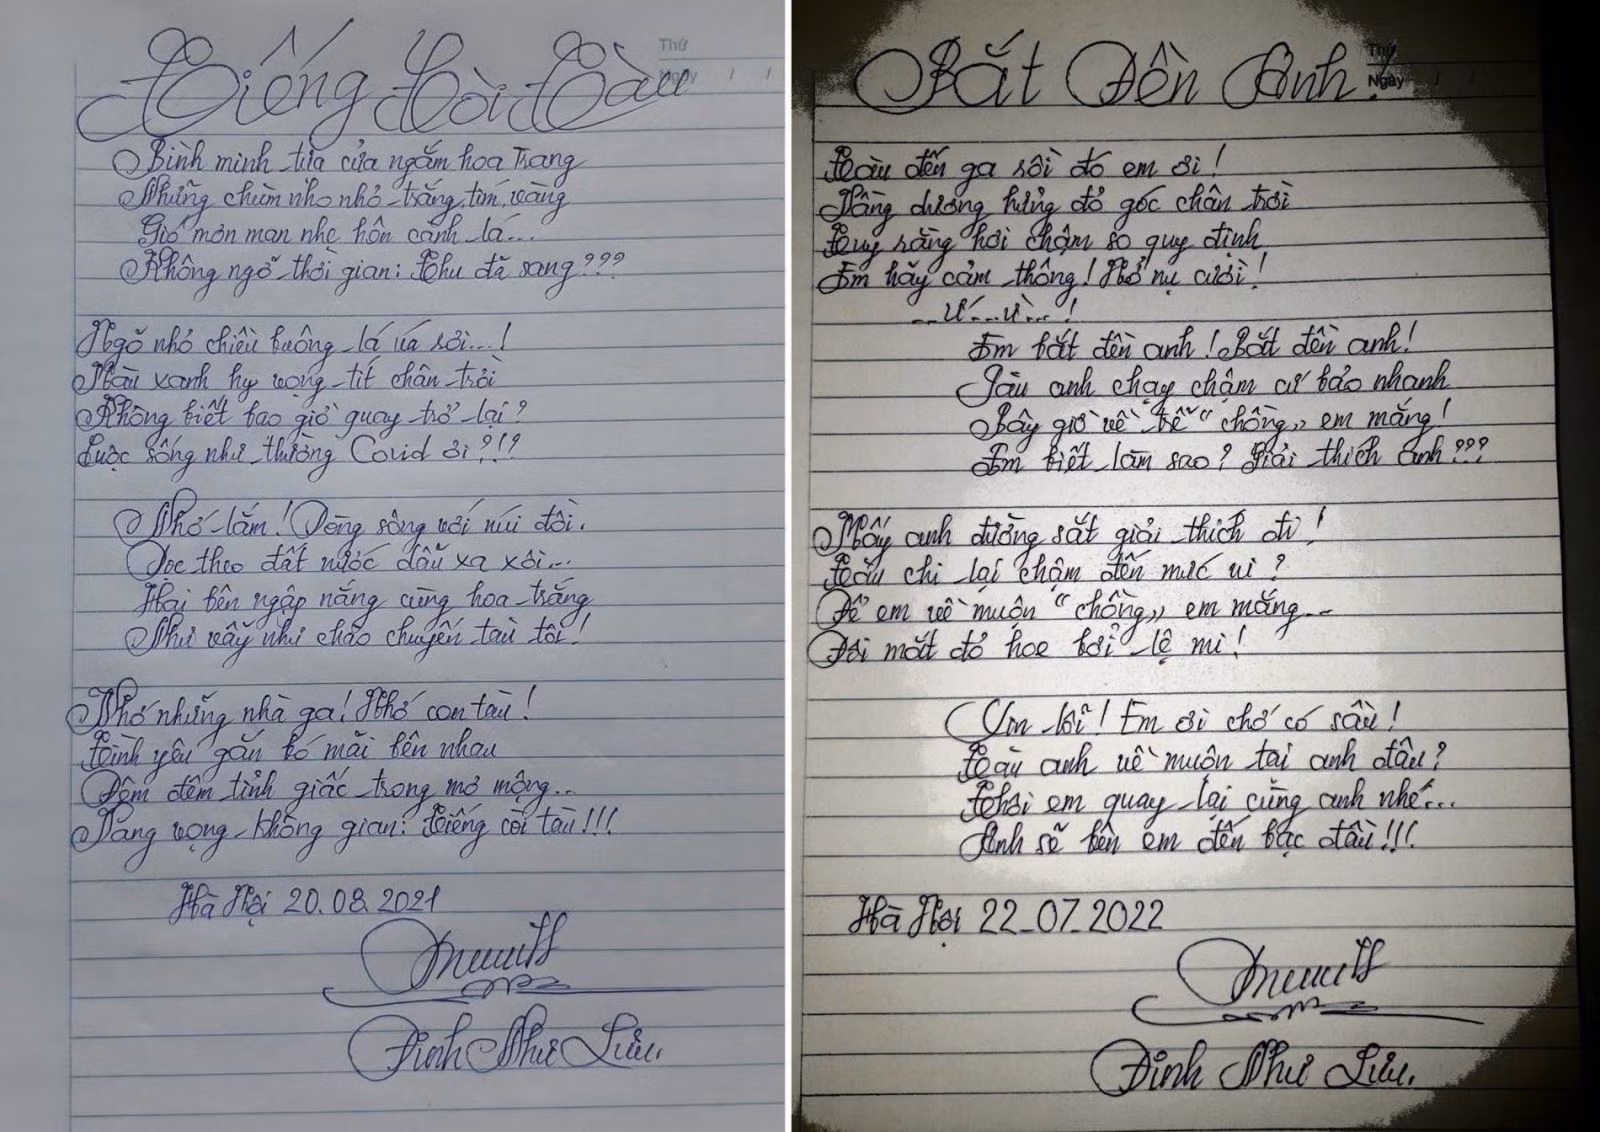 Tiếng Còi Tàu
Thứ
Ngày / /
Bình minh tựa cửa ngắm hoa trang
Những chùm nho nhỏ trắng, tím, vàng
Gió mơn man nhẹ hôn cành lá...
Không ngỡ thời gian: Thu đã sang???
Ngõ nhỏ chiều buông lá úa rơi...!
Màu xanh hy vọng tít chân trời
Không biết bao giờ quay trở lại?
Cuộc sống như thường Covid ơi?!?
Nhớ lắm! Dòng sông với núi đồi.
Dọc theo đất nước dẫu xa xôi...
Hai bên ngập nắng cùng hoa trắng
Như vẫy như chào chuyến tàu tôi!
Nhớ những nhà ga! Nhớ con tàu!
Tình yêu gắn bó mãi bên nhau
Đêm đêm tỉnh giấc trong mơ mộng...
Vang vọng không gian: Tiếng còi tàu!!!
Hà Nội 20.08.2021
Đinh Như Lưu.
Bắt Đền Anh!
Thứ
Ngày / /
Tàu đến ga rồi đó em ơi!
Vầng dương hửng đỏ góc chân trời
Tuy rằng hơi chậm so quy định
Em hãy cảm thông! Nở nụ cười!
...Ứ...ừ...!
Em bắt đền anh! Bắt đền anh!
Tàu anh chạy chậm cứ bảo nhanh
Bây giờ về trễ "chồng" em mắng!
Em biết làm sao? Giải thích anh???
Mấy anh đường sắt giải thích đi!
Tàu chi lại chậm đến mức ni?
Để em về muộn "chồng" em mắng...
Đôi mắt đỏ hoe bởi lệ mi!
Ừm lỗi! Em ơi chớ có sầu!
Tàu anh về muộn tại anh đâu?
Thôi em quay lại cùng anh nhé...
Anh sẽ bên em đến bạc đầu!!!
Hà Nội 22_07_2022
Đinh Như Lưu.